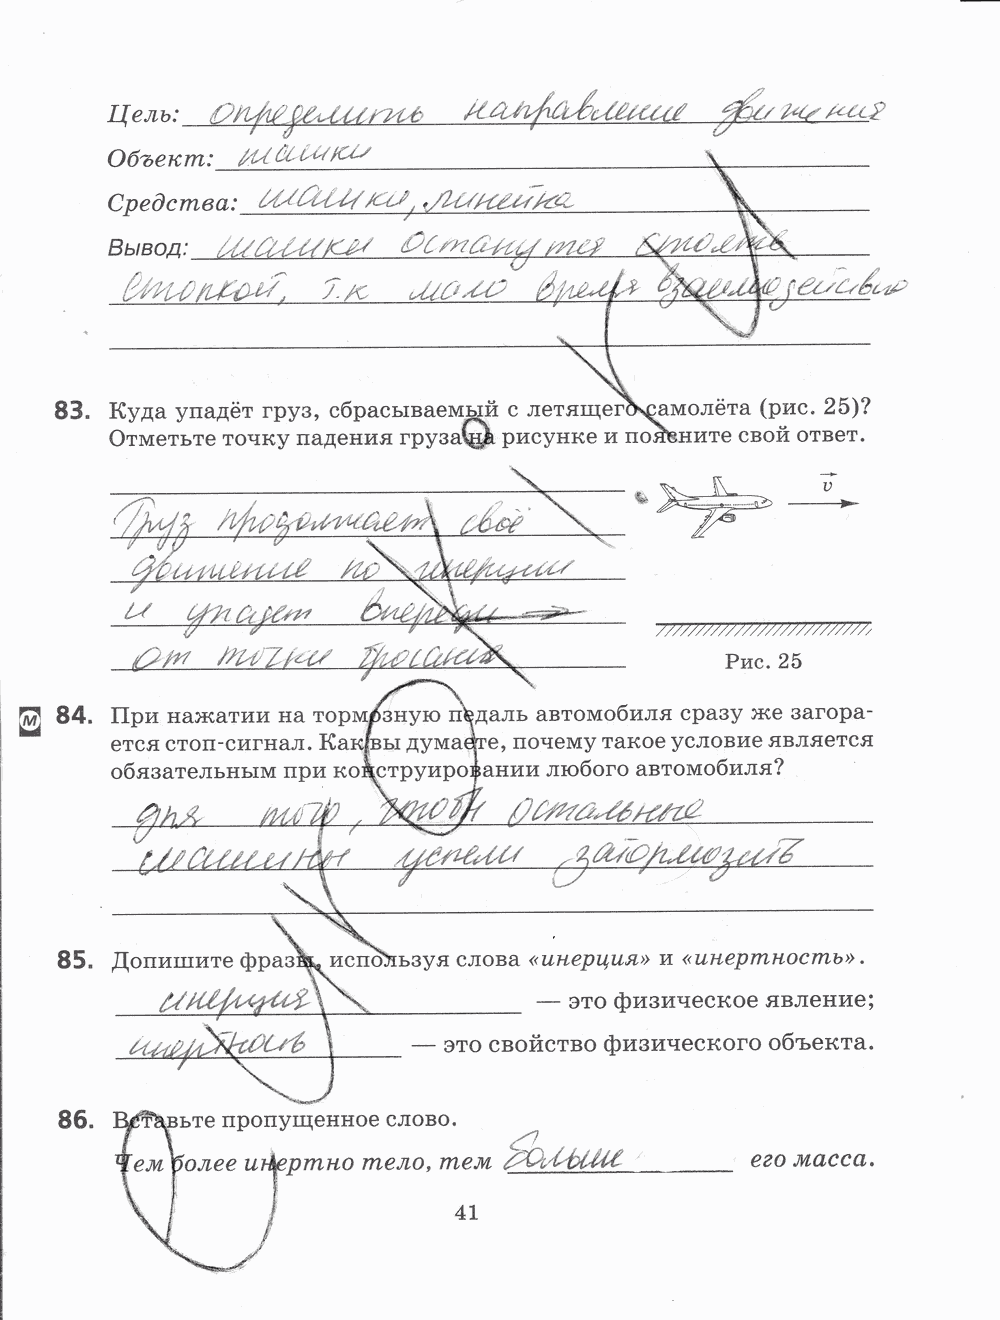 Цель: определить направление движения
Объект: шашки
Средства: шашки, линейка
Вывод: шашки останутся стоять
стопкой, т.к мало время взаимодействия
83. Куда упадёт груз, сбрасываемый с летящего самолёта (рис. 25)?
Отметьте точку падения груза на рисунке и поясните свой ответ.
v
Груз продолжает своё
движение по инерции
и упадет впереди
от точки бросания
Рис. 25
М 84. При нажатии на тормозную педаль автомобиля сразу же загора-
ется стоп-сигнал. Как вы думаете, почему такое условие является
обязательным при конструировании любого автомобиля?
для того, чтобы остальные
машины успели затормозить
85. Допишите фразы, используя слова «инерция» и «инертность».
инерция — это физическое явление;
инертность — это свойство физического объекта.
86. Вставьте пропущенное слово.
Чем более инертно тело, тем больше его масса.
41